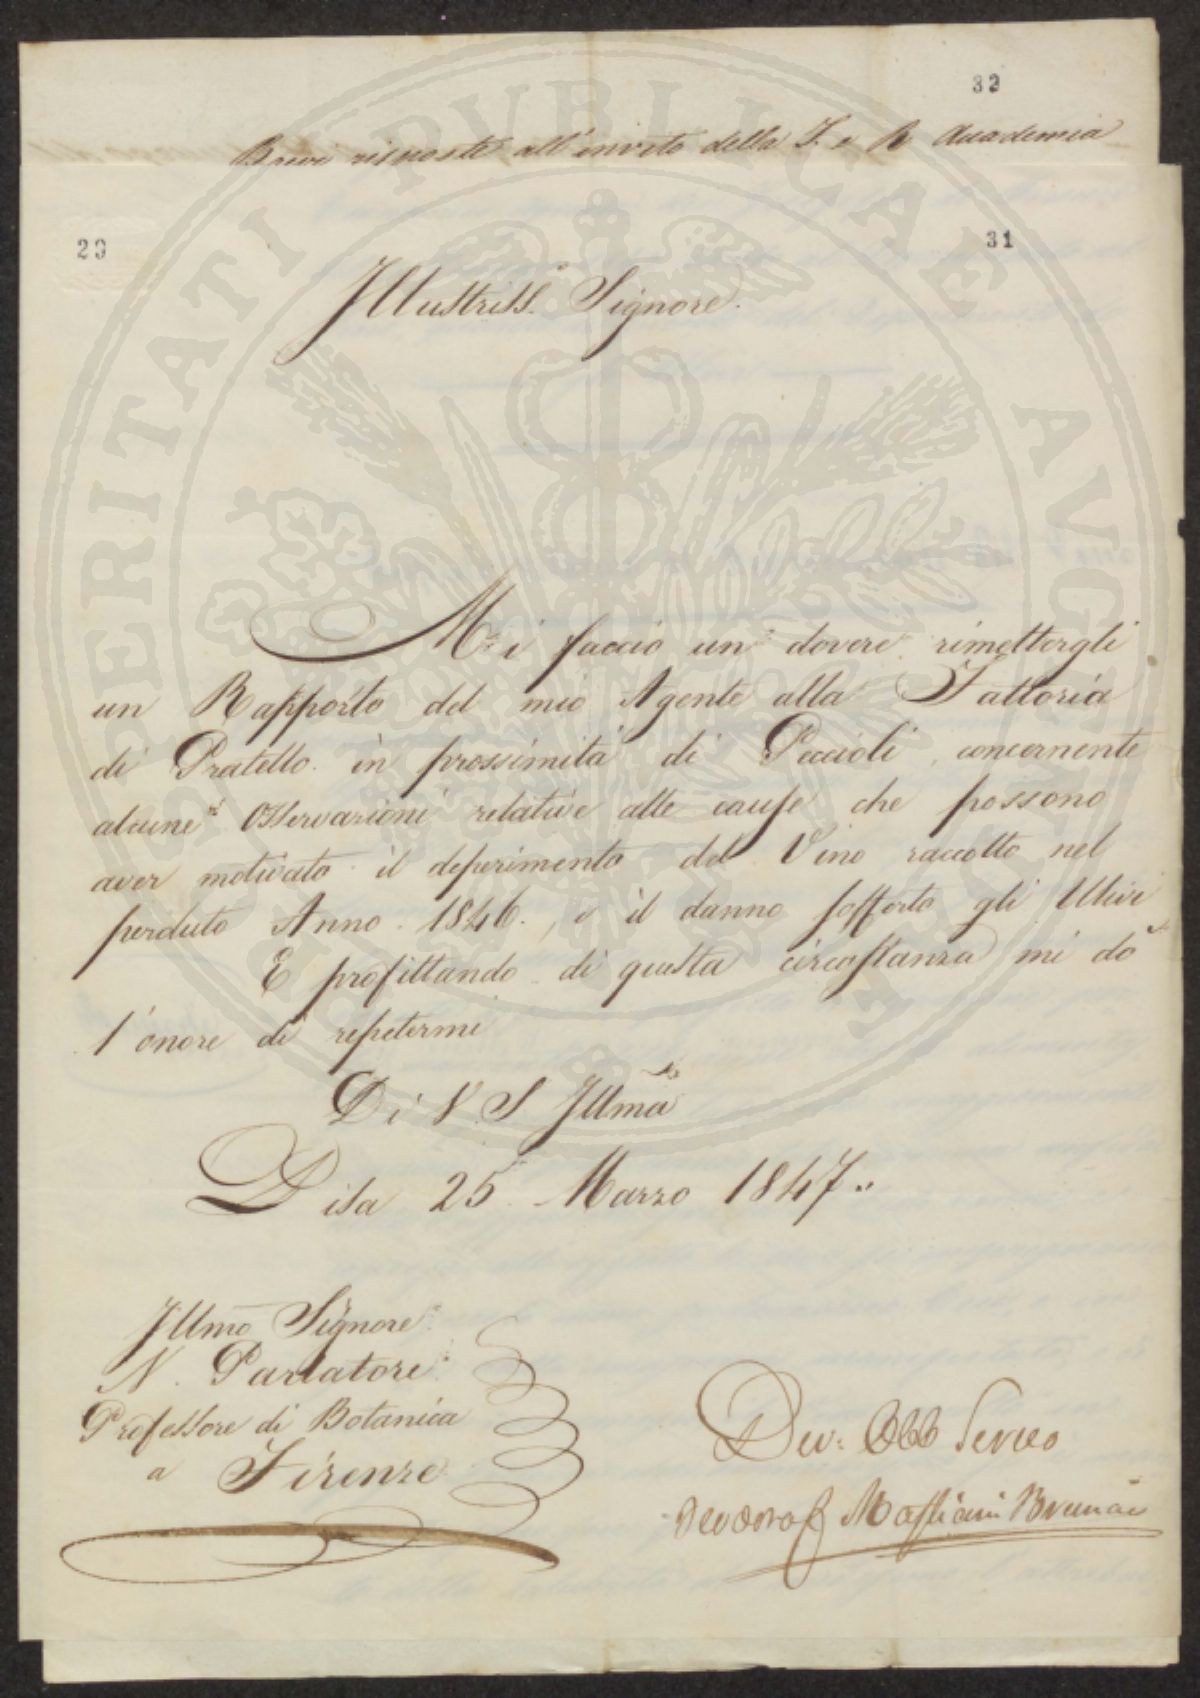 32
Brevi risposte all'invito della I. e R. Accademia
29
31
Illustriss. Signore.
Mi faccio un dovere rimettergli
un Rapporto del mio Agente alla Fattoria
di Pratello in prossimità di Peccioli, concernente
alcune Osservazioni relative alle cause che possono
aver motivato il deperimento del Vino raccolto nel
perduto Anno 1846., e il danno sofferto gli Ulivi
E profittando di questa circostanza mi do
l'onore di repetermi
Di V. S. Illma
Pisa 25 Marzo 1847.
Illmo Signore
N. Parlatore
Professore di Botanica
a Firenze
Dev: Obb Servo
Mastiani Brunac
PERITATI PVBLICAE AVGENDAE